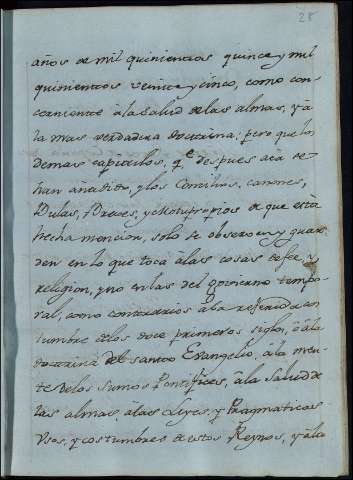 28
años de mil quinientos quince y mil
quinientos veinte y cinco, como con-
cerniente à la salud de las almas, y à
la mas verdadera doctrina, pero que los
demas capitulos, qe despues acà se
han añadido, y los Concilios, canones,
Bulas, Breves, y Motuproprios de que està
hecha mencion, solo se observen y guar-
den en lo que toca à las cosas de fee, y
religion, y no en las del govierno tempo-
ral, como contrarios à la referida cos-
tumbre de los doce primeros siglos, à la
doctrina del santo Evangelio, à la men-
te de los Sumos Pontifices, à la salud de
las almas, à las Leyes, y Pragmaticas
Usos, y costumbres de estos Reynos, y à la